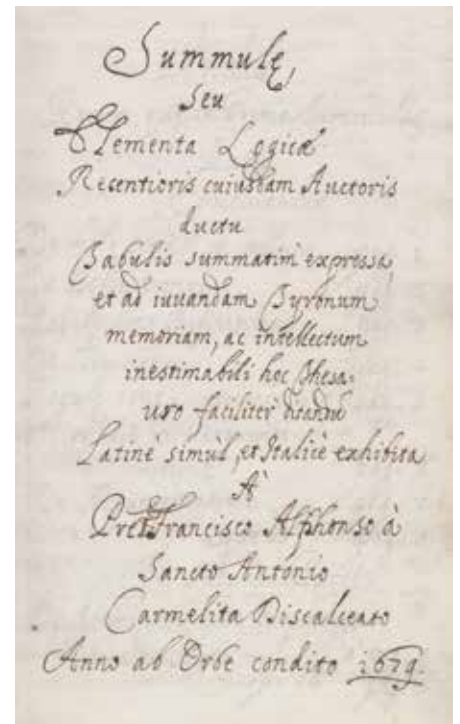 Summulę,
Seu
Elementa Logicæ
Recentioris cuiusdam Auctoris
ductu
Tabulis summatim expressa,
et ad iuvandam Tyronum
memoriam, ac intellectum
inestimabili hoc Thesa-
uro faciliter ditandū
Latinè simùl, et Italicè exhibita
A'
Francisco Alphonso à
Sancto Antonio
Carmelita Discalceato
Anno ab Orbe condito 1679.